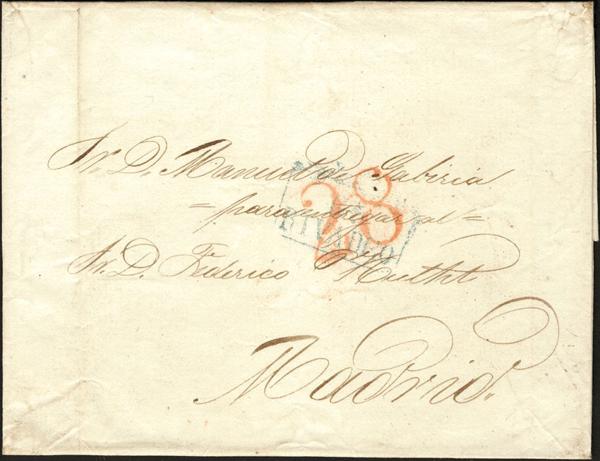 Sr. D. Manuel de Gabiria
28
= para entregar al =
RIVADEO
Sr. D. Federico
Madrid.